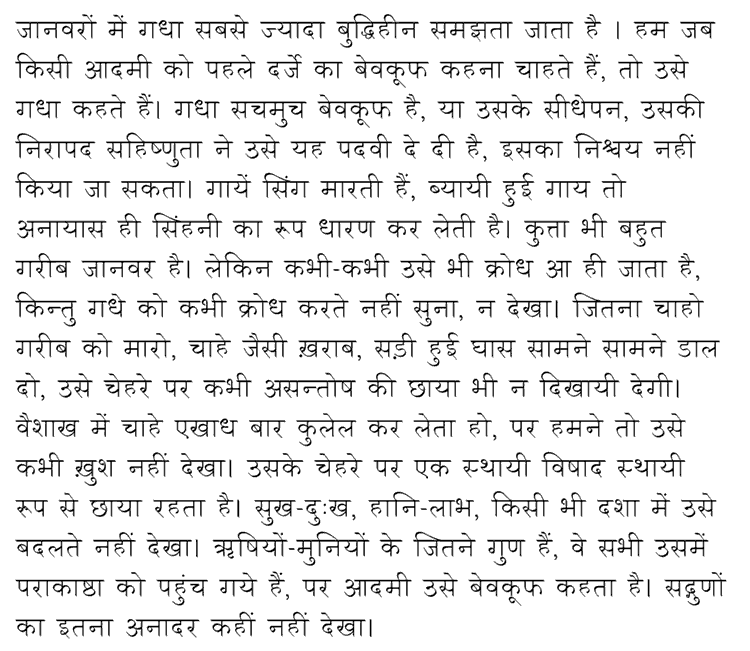 जानवरों में गधा सबसे ज्यादा बुद्धिहीन समझता जाता है । हम जब
किसी आदमी को पहले दर्जे का बेवकूफ कहना चाहते हैं, तो उसे
गधा कहते हैं। गधा सचमुच बेवकूफ है, या उसके सीधेपन, उसकी
निरापद सहिष्णुता ने उसे यह पदवी दे दी है, इसका निश्चय नहीं
किया जा सकता। गायें सिंग मारती हैं, ब्यायी हुई गाय तो
अनायास ही सिंहनी का रूप धारण कर लेती है। कुत्ता भी बहुत
गरीब जानवर है। लेकिन कभी-कभी उसे भी क्रोध आ ही जाता है,
किन्तु गधे को कभी क्रोध करते नहीं सुना, न देखा। जितना चाहो
गरीब को मारो, चाहे जैसी ख़राब, सड़ी हुई घास सामने सामने डाल
दो, उसे चेहरे पर कभी असन्तोष की छाया भी न दिखायी देगी।
वैशाख में चाहे एखाध बार कुलेल कर लेता हो, पर हमने तो उसे
कभी ख़ुश नहीं देखा। उसके चेहरे पर एक स्थायी विषाद स्थायी
रूप से छाया रहता है। सुख-दुःख, हानि-लाभ, किसी भी दशा में उसे
बदलते नहीं देखा। ऋषियों-मुनियों के जितने गुण हैं, वे सभी उसमें
पराकाष्ठा को पहुंच गये हैं, पर आदमी उसे बेवकूफ कहता है। सद्गुणों
का इतना अनादर कहीं नहीं देखा।